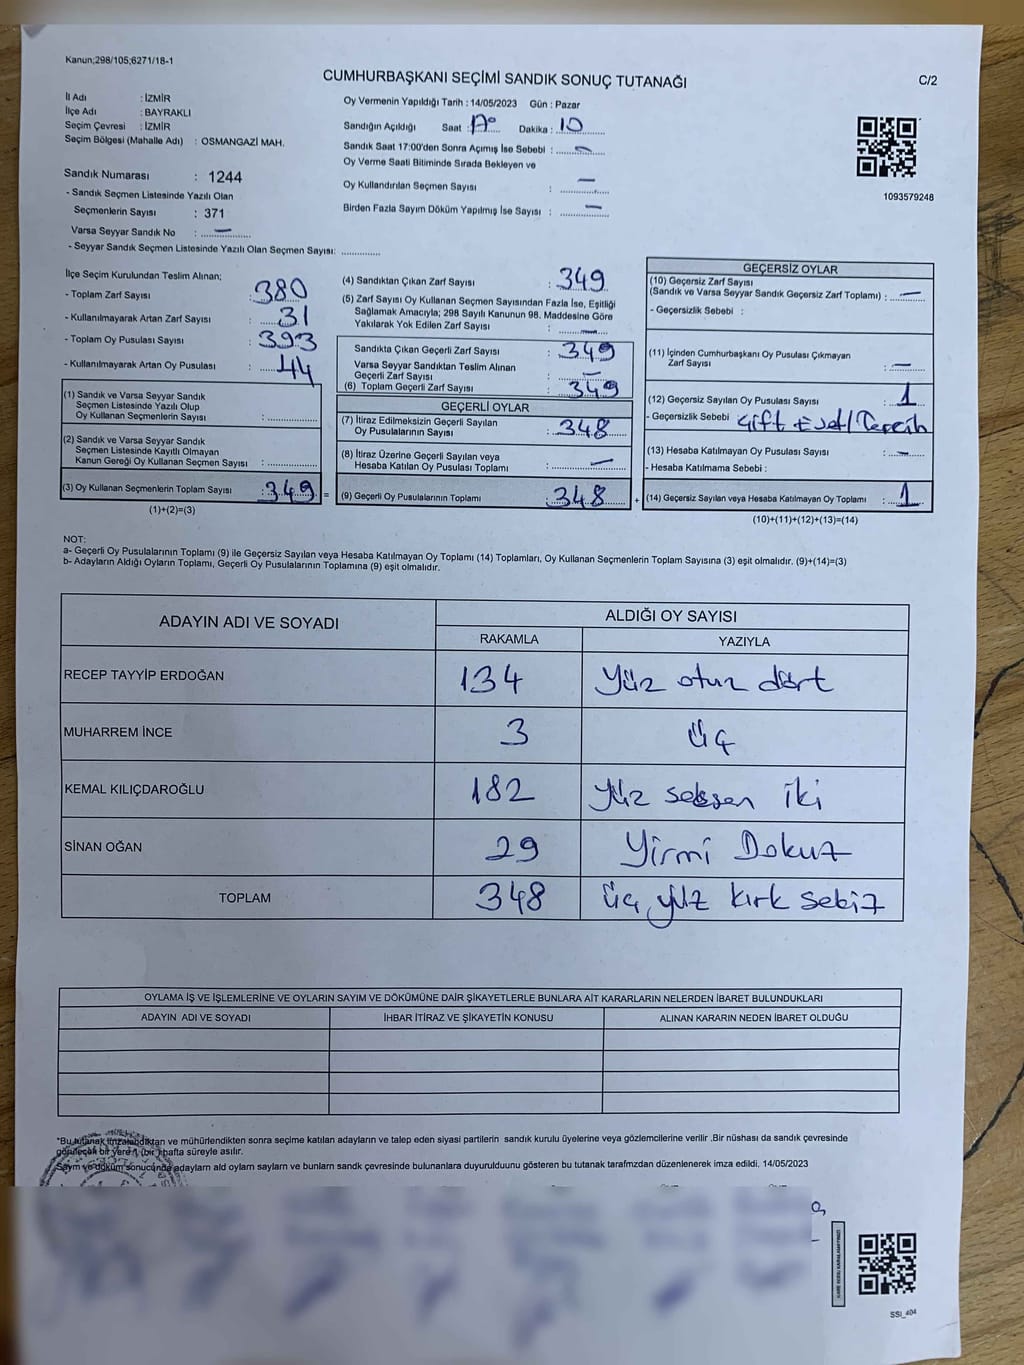 Kanun;298/105;6271/18-1
CUMHURBAŞKANI SEÇİMİ SANDIK SONUÇ TUTANAĞI
C/2
İl Adı : İZMİR
İlçe Adı : BAYRAKLI
Seçim Çevresi : İZMİR
Seçim Bölgesi (Mahalle Adı) : OSMANGAZİ MAH.
Sandık Numarası : 1244
- Sandık Seçmen Listesinde Yazılı Olan
Seçmenlerin Sayısı : 371
Varsa Seyyar Sandık No : —
- Seyyar Sandık Seçmen Listesinde Yazılı Olan Seçmen Sayısı:
Oy Vermenin Yapıldığı Tarih : 14/05/2023 Gün : Pazar
Sandığın Açıldığı Saat : 17⁰ Dakika : 10
Sandık Saat 17:00'den Sonra Açımış İse Sebebi : —
Oy Verme Saati Bitiminde Sırada Bekleyen ve
Oy Kullandırılan Seçmen Sayısı : —
Birden Fazla Sayım Döküm Yapılmış İse Sayısı : —
1093579248
İlçe Seçim Kurulundan Teslim Alınan;
- Toplam Zarf Sayısı : 380
- Kullanılmayarak Artan Zarf Sayısı : 31
- Toplam Oy Pusulası Sayısı : 393
- Kullanılmayarak Artan Oy Pusulası : 44
(1) Sandık ve Varsa Seyyar Sandık
Seçmen Listesinde Yazılı Olup
Oy Kullanan Seçmenlerin Sayısı :
(2) Sandık ve Varsa Seyyar Sandık
Seçmen Listesinde Kayıtlı Olmayan
Kanun Gereği Oy Kullanan Seçmen Sayısı :
(3) Oy Kullanan Seçmenlerin Toplam Sayısı : 349 =
(1)+(2)=(3)
(4) Sandıktan Çıkan Zarf Sayısı : 349
(5) Zarf Sayısı Oy Kullanan Seçmen Sayısından Fazla İse, Eşitliği
Sağlamak Amacıyla; 298 Sayılı Kanunun 98. Maddesine Göre
Yakılarak Yok Edilen Zarf Sayısı : —
Sandıkta Çıkan Geçerli Zarf Sayısı : 349
Varsa Seyyar Sandıktan Teslim Alınan
Geçerli Zarf Sayısı : —
(6) Toplam Geçerli Zarf Sayısı : 349
GEÇERLİ OYLAR
(7) İtiraz Edilmeksizin Geçerli Sayılan
Oy Pusulalarının Sayısı : 348
(8) İtiraz Üzerine Geçerli Sayılan veya
Hesaba Katılan Oy Pusulası Toplamı : —
(9) Geçerli Oy Pusulalarının Toplamı : 348 +
GEÇERSİZ OYLAR
(10) Geçersiz Zarf Sayısı
(Sandık ve Varsa Seyyar Sandık Geçersiz Zarf Toplamı) : —
- Geçersizlik Sebebi :
(11) İçinden Cumhurbaşkanı Oy Pusulası Çıkmayan
Zarf Sayısı : —
(12) Geçersiz Sayılan Oy Pusulası Sayısı : 1
- Geçersizlik Sebebi : Çift Evet/Tercih
(13) Hesaba Katılmayan Oy Pusulası Sayısı : —
- Hesaba Katılmama Sebebi :
(14) Geçersiz Sayılan veya Hesaba Katılmayan Oy Toplamı : 1
(10)+(11)+(12)+(13)=(14)
NOT:
a- Geçerli Oy Pusulalarının Toplamı (9) ile Geçersiz Sayılan veya Hesaba Katılmayan Oy Toplamı (14) Toplamları, Oy Kullanan Seçmenlerin Toplam Sayısına (3) eşit olmalıdır. (9)+(14)=(3)
b- Adayların Aldığı Oyların Toplamı, Geçerli Oy Pusulalarının Toplamına (9) eşit olmalıdır.
ADAYIN ADI VE SOYADI ALDIĞI OY SAYISI
RAKAMLA YAZIYLA
RECEP TAYYİP ERDOĞAN 134 Yüz otuz dört
MUHARREM İNCE 3 üç
KEMAL KILIÇDAROĞLU 182 Yüz seksen iki
SİNAN OĞAN 29 Yirmi Dokuz
TOPLAM 348 üç yüz kırk sekiz
OYLAMA İŞ VE İŞLEMLERİNE VE OYLARIN SAYIM VE DÖKÜMÜNE DAİR ŞİKAYETLERLE BUNLARA AİT KARARLARIN NELERDEN İBARET BULUNDUKLARI
ADAYIN ADI VE SOYADI İHBAR İTİRAZ VE ŞİKAYETİN KONUSU ALINAN KARARIN NEDEN İBARET OLDUĞU
*Bu tutanak imzalandıktan ve mühürlendikten sonra seçime katılan adayların ve talep eden siyasi partilerin sandık kurulu üyelerine veya gözlemcilerine verilir .Bir nüshası da sandık çevresinde
görülecek bir yere 1 (bir) hafta süreyle asılır.
Sayım ve döküm sonucunda adayların ald oyların sayların ve bunların sandk çevresinde bulunanlara duyurulduunu gösteren bu tutanak tarafmzdan düzenlenerek imza edildi. 14/05/2023
SSI_404